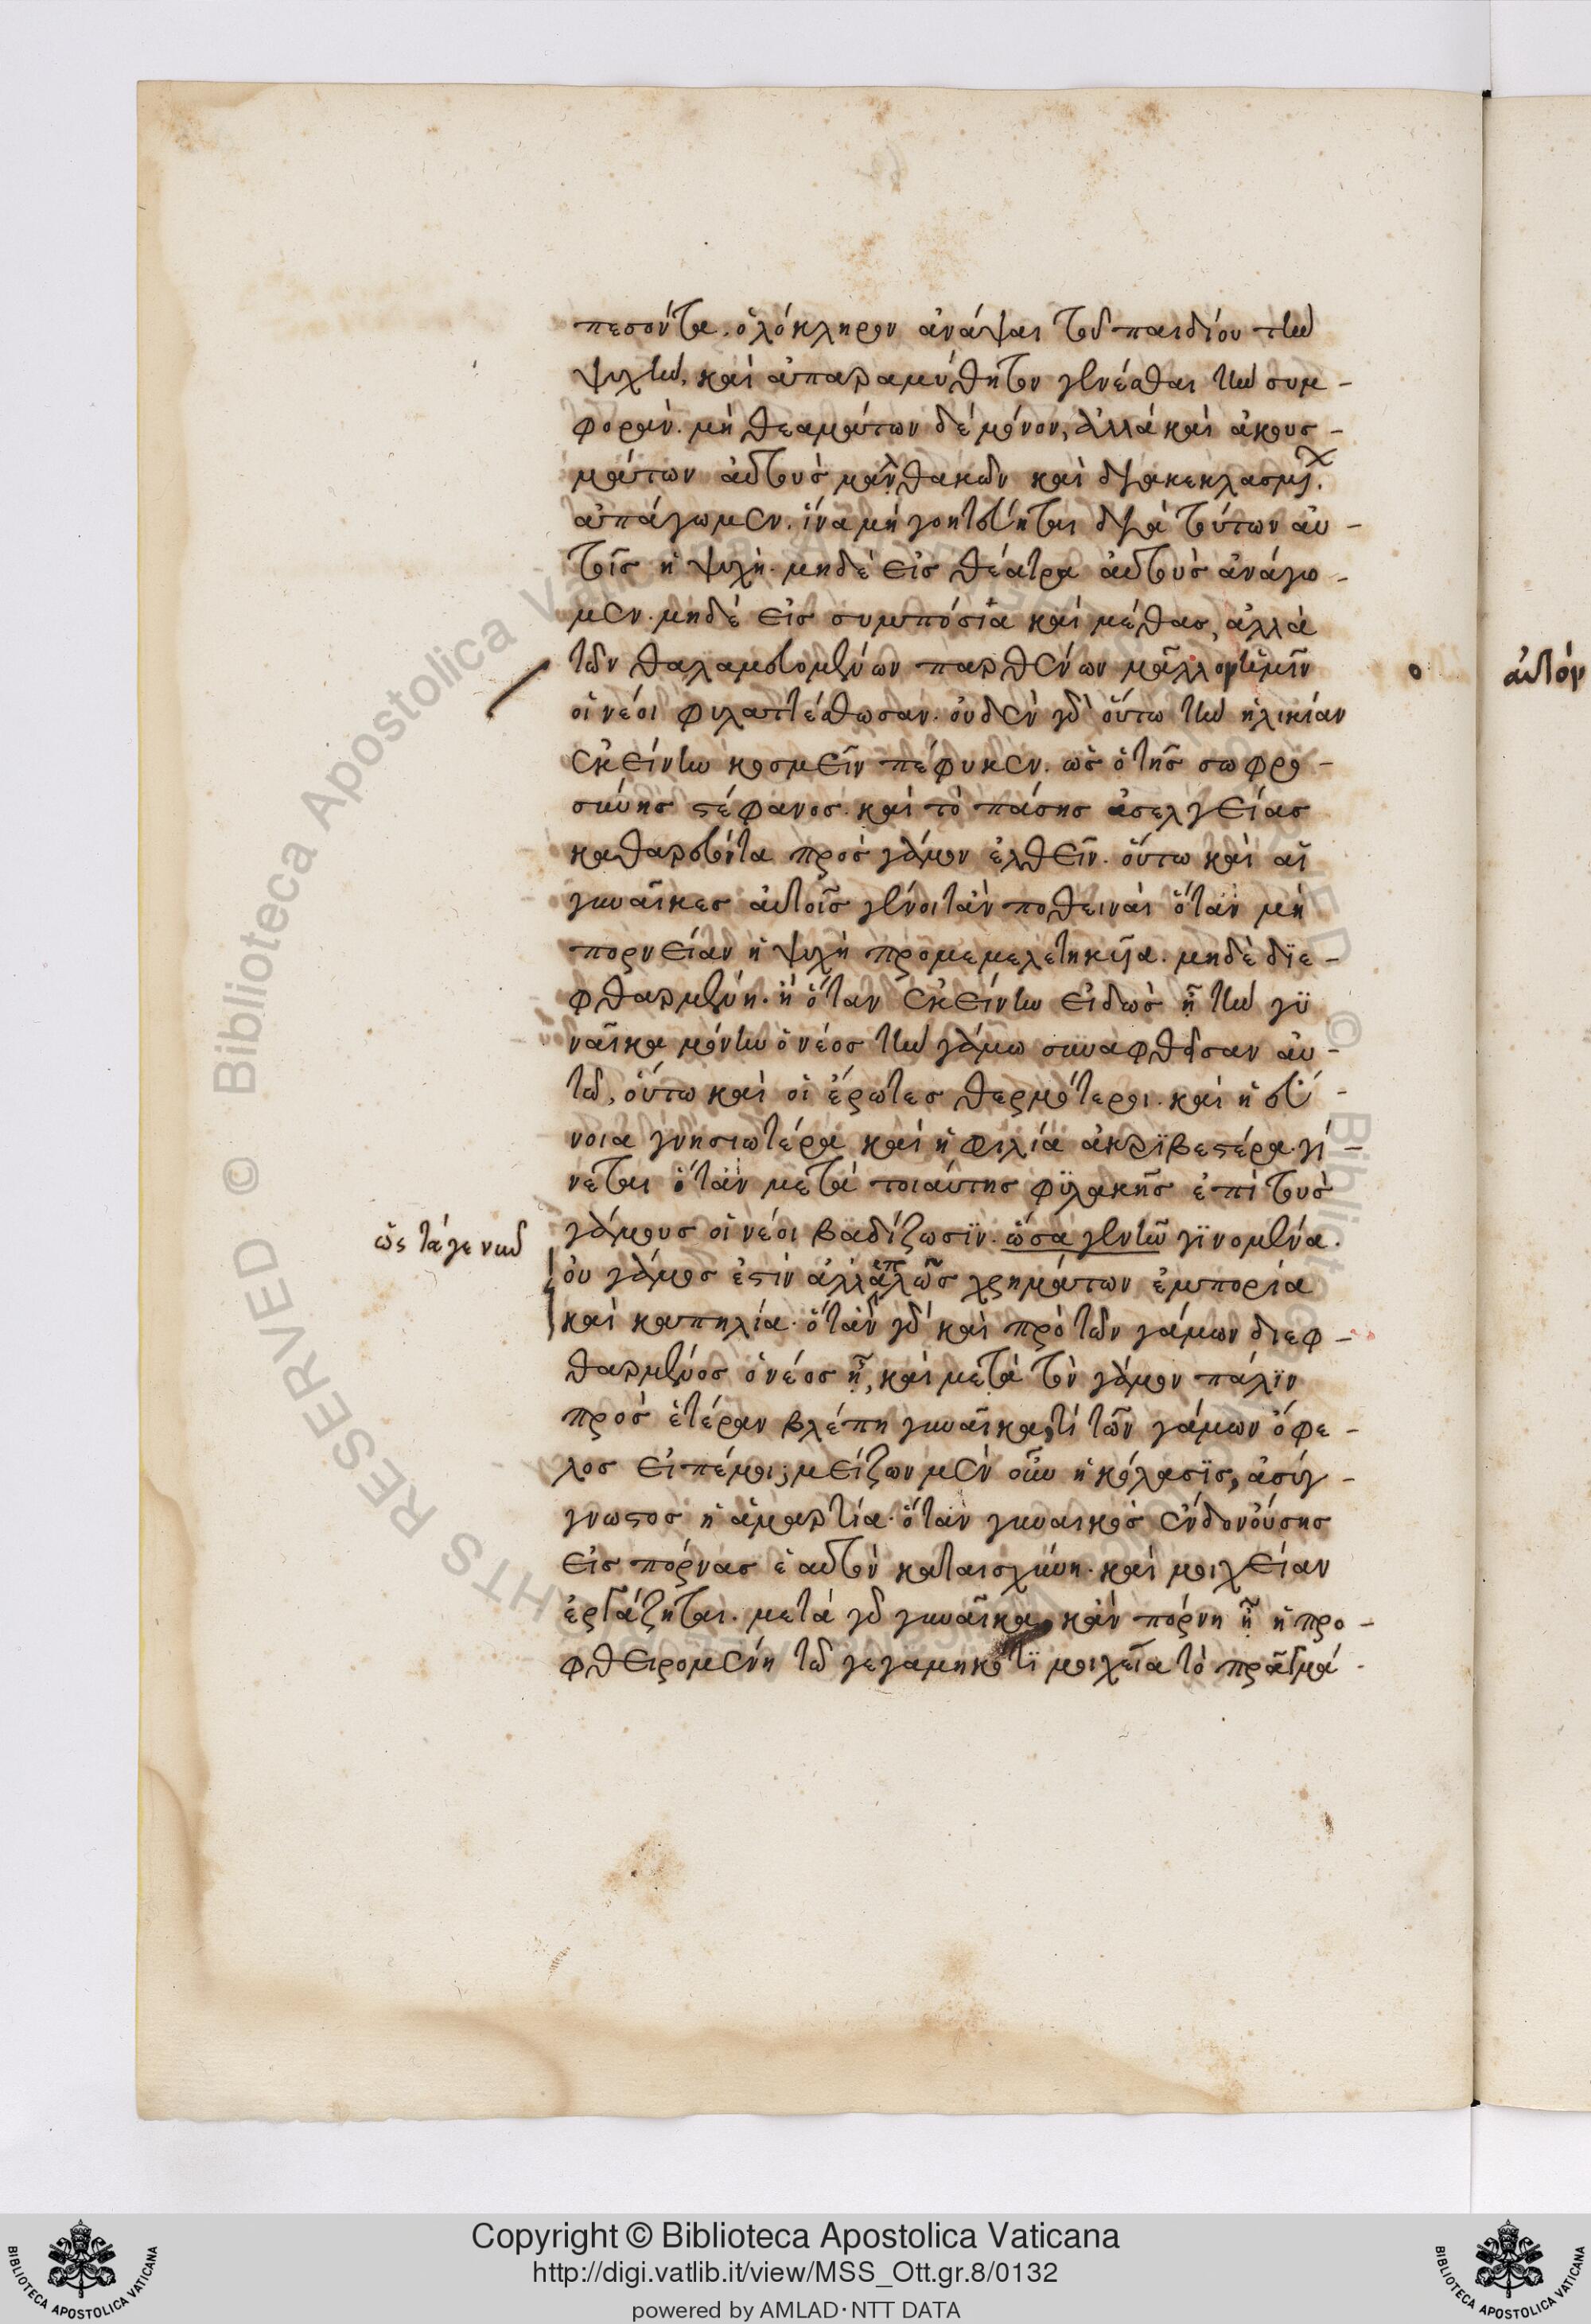 πεσόντα. ὁλόκληρον ἀνάψαι τοῦ παιδίου τὴν
ψυχὴν, καὶ ἀπαραμύθητον γενέσθαι τὴν συμ-
φορὰν. μὴ θεαμάτων δὲ μόνον, ἀλλὰ καὶ ἀκουσ-
μάτων αὐτοὺς μαλθακῶν καὶ διακεκλασμένων
ἀπάγωμεν. ἵνα μὴ γοητεύηται διὰ τούτων αὐ-
τοῖς ἡ ψυχὴ. μηδὲ εἰς θέατρα αὐτοὺς ἀνάγω-
μεν. μηδὲ εἰς συμπόσια καὶ μέθας, ἀλλὰ
τῶν θαλαμευομένων παρθένων μᾶλλον ἡμῖν
οἱ νέοι φυλαττέσθωσαν. οὐδὲν γὰρ οὕτω τὴν ἡλικίαν
ἐκείνην κοσμεῖν πέφυκεν. ὡς ὁ τῆς σωφρο-
σύνης στέφανος. καὶ τὸ πάσης ἀσελγείας
καθαρεύοντα πρὸς γάμον ἐλθεῖν. οὕτω καὶ αἱ
γυναῖκες αὐτοῖς γένοιτ᾽ ἂν ποθειναὶ ὅταν μὴ
πορνείαν ἡ ψυχὴ προμεμελετηκυῖα. μηδὲ διε-
φθαρμένη. ἢ ὅταν ἐκείνην εἰδὼς ᾖ τὴν γυ
ναῖκα μόνην ὁ νέος τὴν γάμω συναφθεῖσαν αὐ-
τῶ, οὕτω καὶ οἱ ἔρωτες θερμότεροι. καὶ ἡ εὔ-
νοια γνησιωτέρα καὶ ἡ φιλία ἀκριβεστέρα. γί-
νεται ὅταν μετὰ τοιαύτης φυλακῆς ἐπὶ τοὺς
γάμους οἱ νέοι βαδίζωσιν. ὡσα γεντῶ γινομένα.
ὥς τά γε νῦν
οὐ γάμος ἐστὶν ἀλλ᾽ ἁπλῶς χρημάτων ἐμπορία
καὶ καπηλία. ὅταν γὰρ καὶ πρὸ τῶν γάμων διεφ-
θαρμένος ὁ νέος ᾖ, καὶ μετὰ τὸν γάμον πάλιν
πρὸς ἑτέραν βλέπῃ γυναῖκα, τί τῶν γάμων ὄφε-
λος εἰπέ μοι; μείζων μὲν οὖν ἡ κόλασις, ἀσύγ-
γνωστος ἡ ἁμαρτία. ὅταν γυναικὸς ἔνδον οὔσης
εἰς πόρνας ἑαυτὸν καταισχύνῃ. καὶ μοιχείαν
ἐργάζηται. μετὰ γὰρ γυναῖκα, κἂν πόρνη ᾖ ἡ προ-
φθειρομένη τῶ γεγαμηκότι μοιχεία τὸ πρᾶγμά
αὐτόν
Copyright © Biblioteca Apostolica Vaticana
http://digi.vatlib.it/view/MSS_Ott.gr.8/0132
powered by AMLAD·NTT DATA
BIBLIOTECA APOSTOLICA VATICANA
BIBLIOTECA APOSTOLICA VATICANA